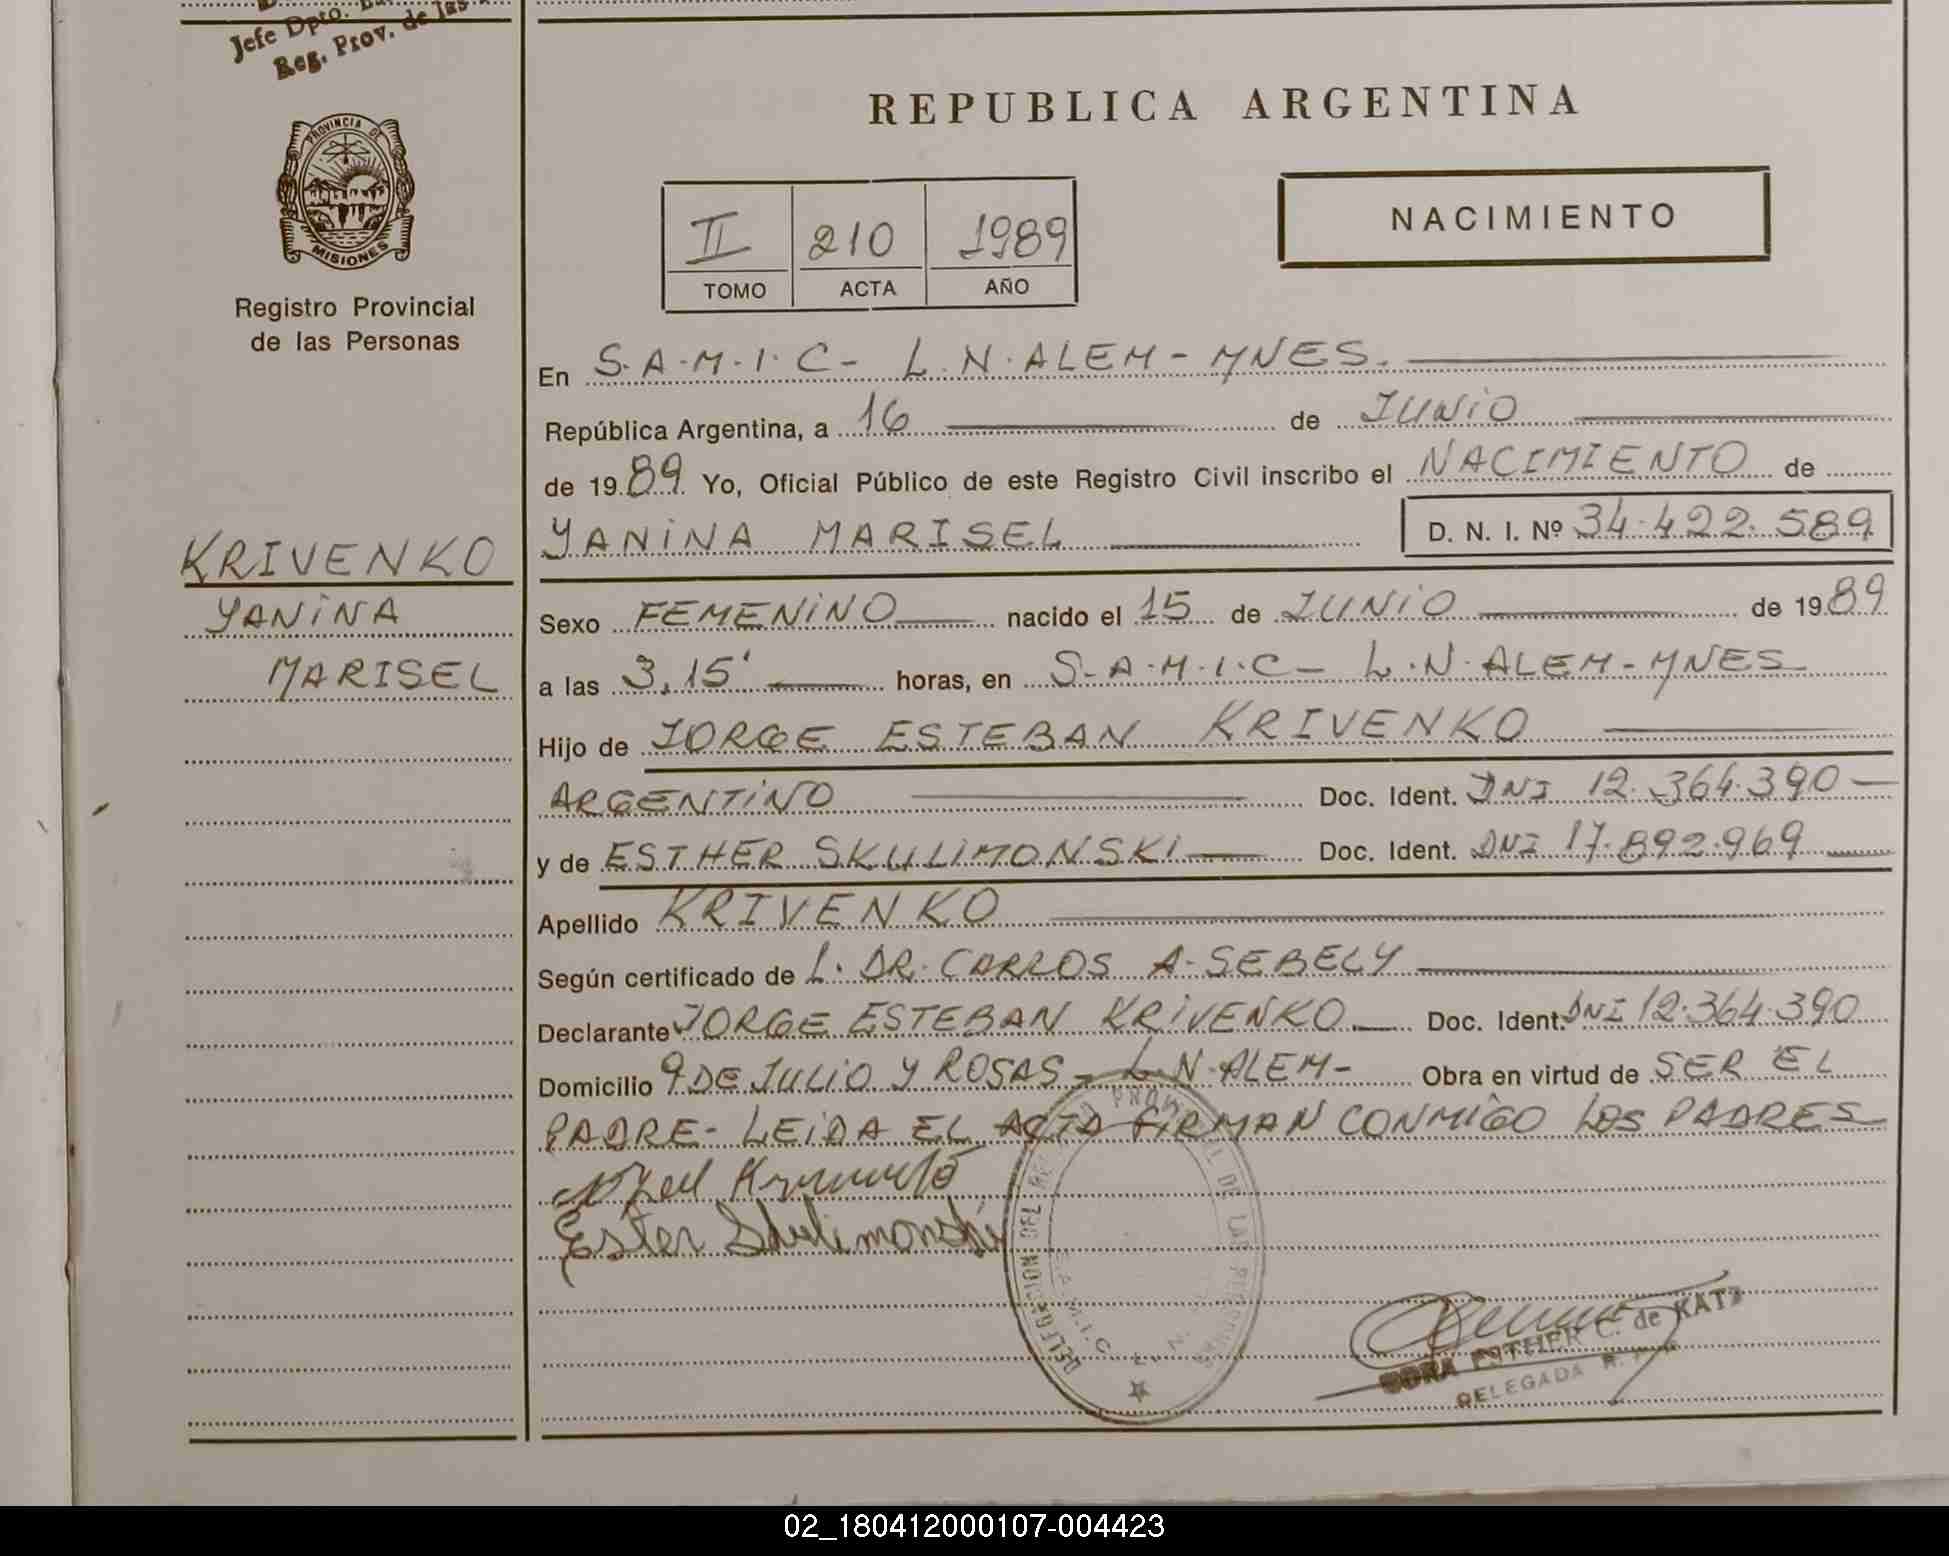 Jefe Dpto.
Reg. Prov. de las
PROVINCIA DE
MISIONES
Registro Provincial
de las Personas
KRIVENKO
YANINA
MARISEL
REPUBLICA ARGENTINA
II 210 1989
TOMO ACTA AÑO
NACIMIENTO
En S.A.M.I.C- L.N.ALEM-MNES.
República Argentina, a 16 de JUNIO
de 1989 Yo, Oficial Público de este Registro Civil inscribo el NACIMIENTO de
YANINA MARISEL D. N. I. Nº 34.422.589
Sexo FEMENINO nacido el 15 de JUNIO de 1989
a las 3,15' horas, en S-A.M.I.C- L.N.ALEM-MNES
Hijo de JORGE ESTEBAN KRIVENKO
ARGENTINO Doc. Ident. DNI 12.364.390
y de ESTHER SKULIMONSKI Doc. Ident. DNI 17.892.969
Apellido KRIVENKO
Según certificado de L. DR. CARLOS A. SEBELY
Declarante JORGE ESTEBAN KRIVENKO Doc. Ident. DNI 12.364.390
Domicilio 9 DE JULIO Y ROSAS - L.N.ALEM- Obra en virtud de SER EL
PADRE- LEIDA EL ACTA FIRMAN CONMIGO LOS PADRES
Ester Skulimonski
DELEGACION 730 PROVINCIAL DE LAS PERSONAS
S.A.M.I.C.
ESTHER C. de KATZ
DELEGADA
02_180412000107-004423